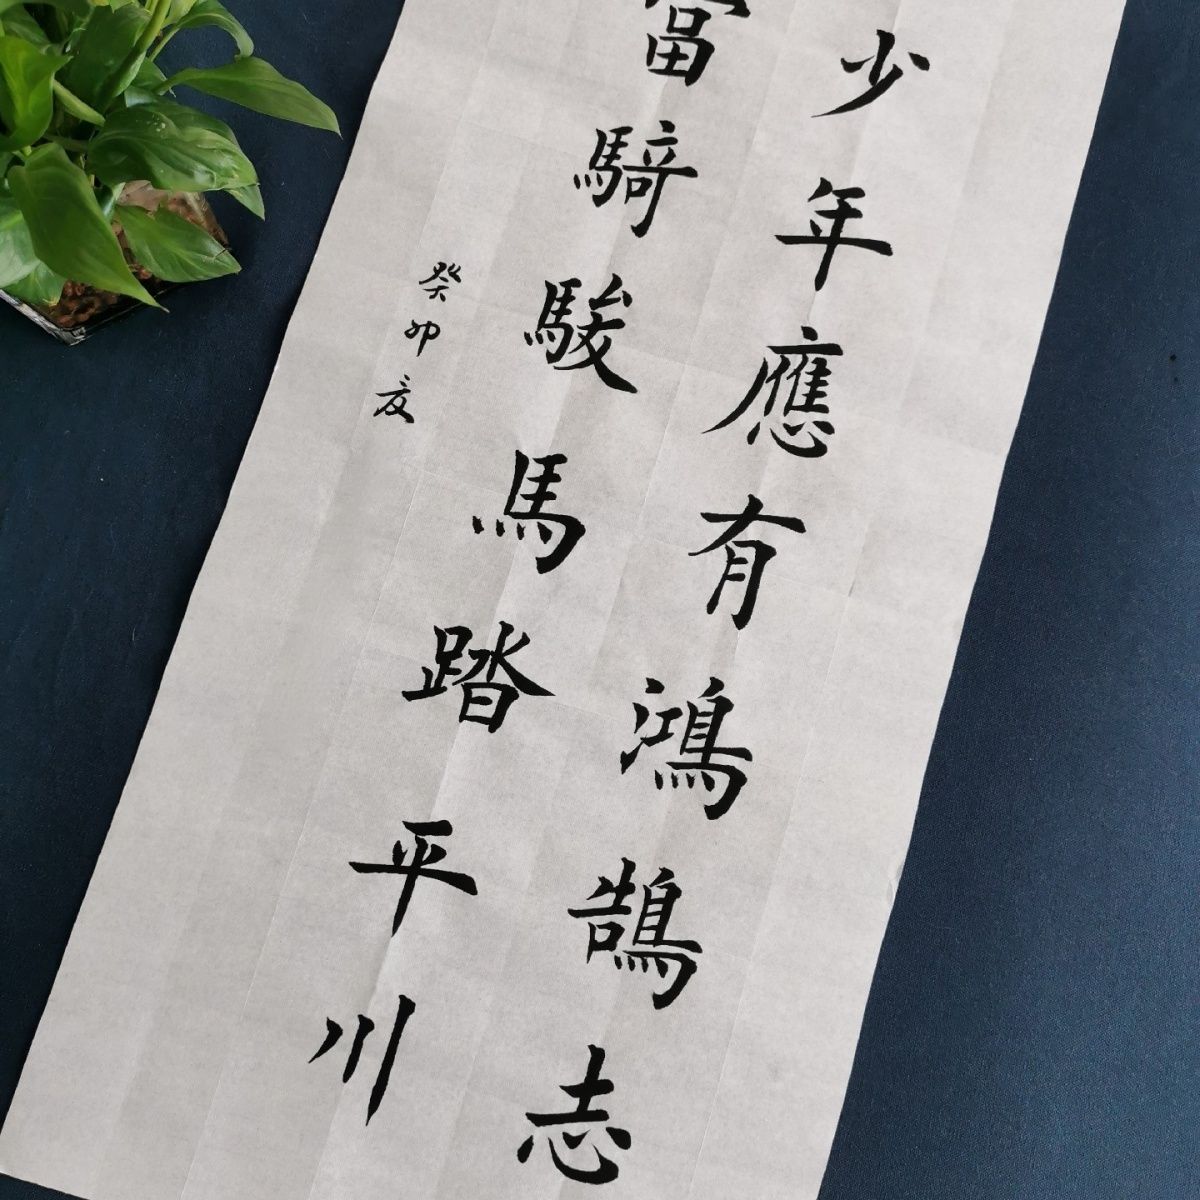 少年應有鴻鵠志
當騎駿馬踏平川
癸卯夏